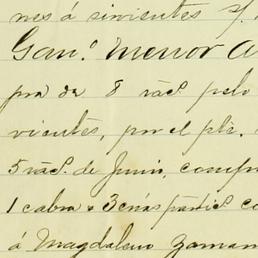 nes á sirvientes p.
Gan.º menor A
pra de 8 vac.s pelo
vientes, por el pte.
5 vac.s de Junio, compr
1 cabra e 3 crías partic. co
á Magdaleno Zaman